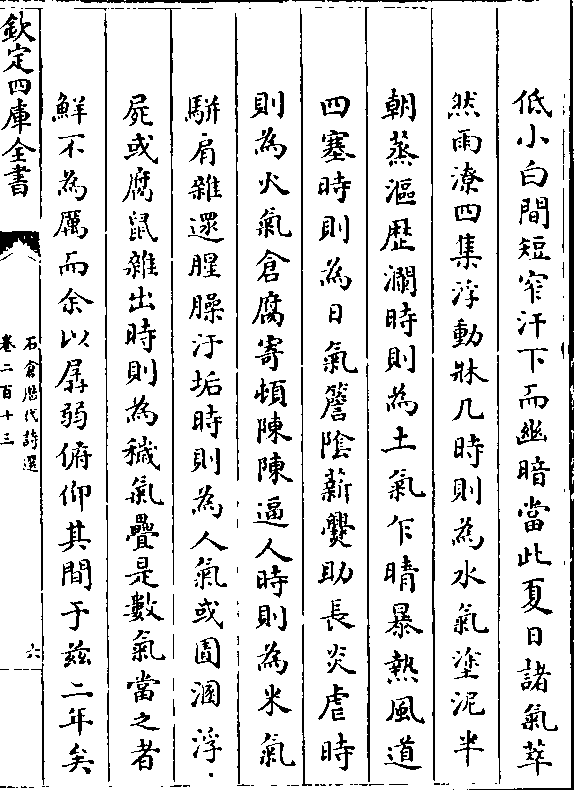 低小白間短窄汙下而幽暗當此夏日諸氣萃
然雨潦四集浮動牀几時則為水氣塗泥半
朝蒸漚歴瀾時則為土氣乍晴暴熱風道
四塞時則為日氣簷隂薪爨助長炎虐時
則為火氣倉腐寄頓陳陳逼人時則為米氣
駢肩雜遝腥臊汙垢時則為人氣或圊溷浮
屍或腐鼠雜出時則為穢氣疊是數氣當之者
鮮不為厲而余以孱弱俯仰其間于兹二年矣
欽定四庫全書
石倉歷代詩選
卷二百十三
六